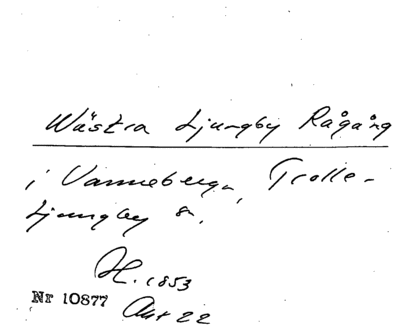 Wästra Ljungby Rågång
i Vanneberga, Trolle-
Ljungby s.
H. 1853
Nr 10877 Akt 22